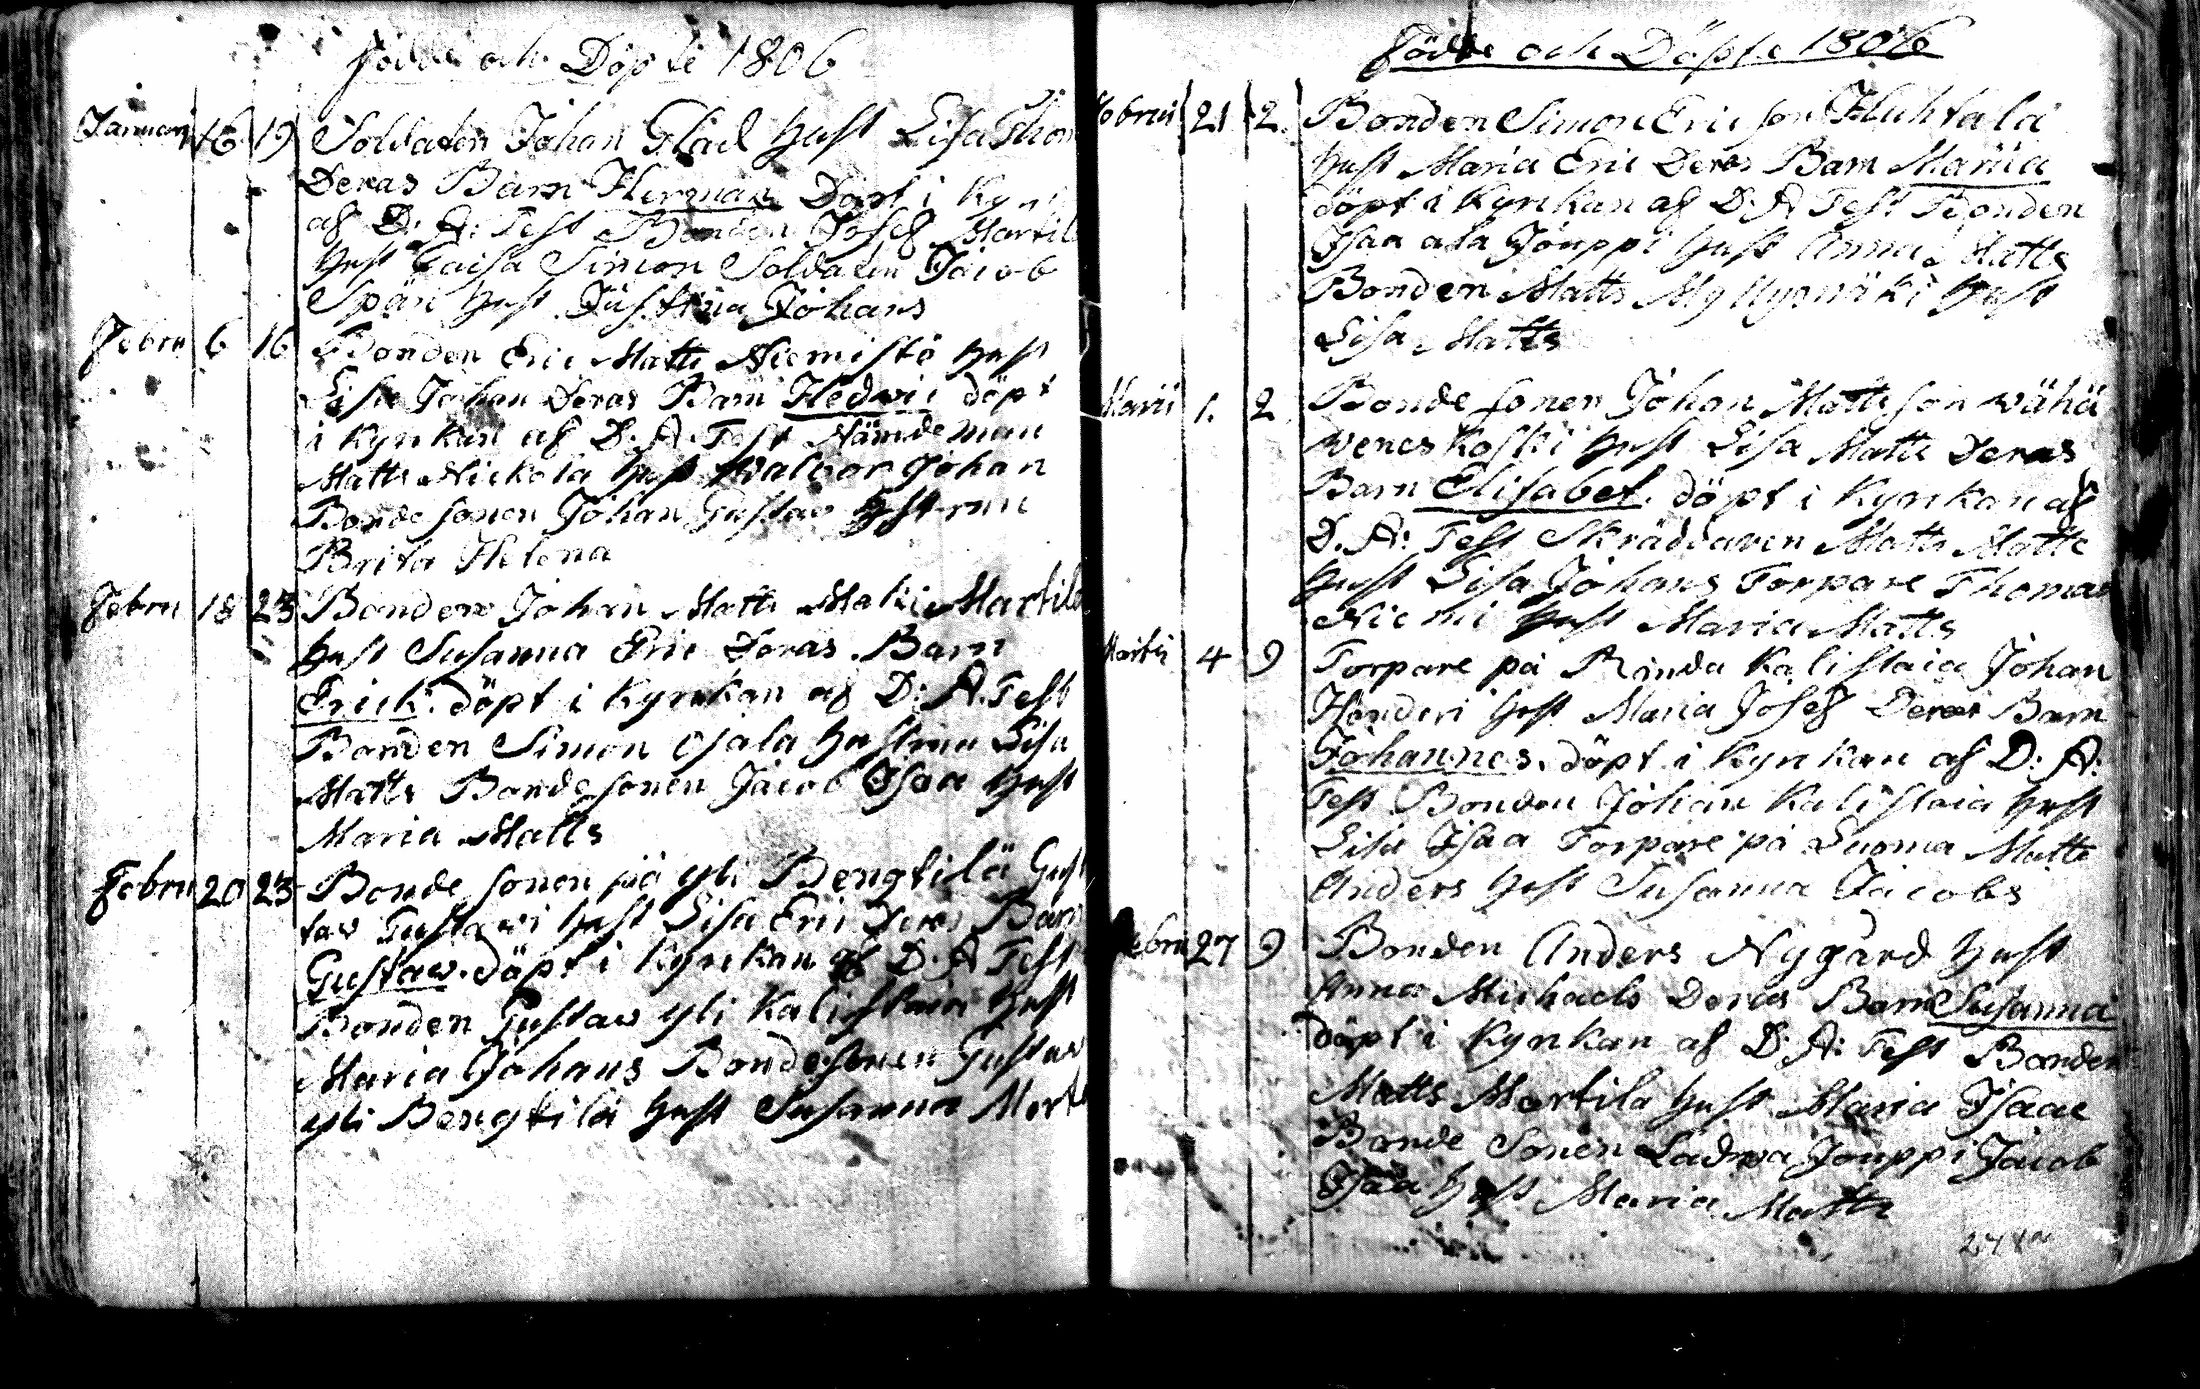 Födde och Döpte 1806
Januari 16 19 Soldaten Johan Glad Hust Lisa Thom
Deras Barn Herman Döpt i Kyr
af D: A: Test Bonden Josef Martil
Hust Caisa Simon Soldaten Jacob
Spän Hust Justina Johans
Febru 6 16 Bonden Eric Matts Niemistö Hust
Lisa Johan Deras Barn Hedvic döpt
i Kyrkan af D. A. Test Nämdeman
Matts Nickola Hust Walbor Johan
Bonde sonen Johan Gustav Hustrun
Brita Helena
Febru 18 23 Bonden Johan Matts Maki Martila
Hust Susanna Eric Deras Barn
Erick. döpt i Kyrkan af D: A. Test
Bonden Simon Ojala Hustrun Lisa
Matts Bonde sonen Jacob Isaa Hust
Maria Matts
Febru 20 23 Bonde sonen på yli Bengtilä Gus
tav Gustavi Hust Lisa Eric Deras Barn
Gustaw. döpt i Kyrkan af D. A Test
Bonden Gustaw yli Kalistaia Hust
Maria Johans Bondesonen Gustav
yli Bengtilä Hust Susanna Mart
Födde och Döpte 1806
Febrü 21 2 Bonden Simon Ericson Huhtala
Hust Maria Eric Deras Barn Maria
döpt i Kyrkan af D: A Test Bonden
Isaa ala Jouppi Hust Anna Matts
Bonden Matts Myllymäki Hust
Lisa Matts
Martii 1. 2 Bonde sonen Johan Mattsson Wähä
Weneskoski Hust Lisa Matts Deras
Barn Elisabet. döpt i Kyrkan af
D. A: Test Skräddaren Matts Matts
Hust Lisa Johans Torpare Thomas
Niemi Hust Maria Matts
Martii 4 9 Torpare på Rinda Kalistaia Johan
Honderi Hust Maria Josef Deras Barn
Johannes. döpt i Kyrkan af D: A:
Test Bonden Johan Kalistaia Hust
Lisa Isaa Torpare på Luoma Matts
Anders Hust Susanna Jacobs
Febru 27 9 Bonden Anders Nygård Hust
Anna Michaels Deras Barn Susanna
döpt i Kyrkan af D: A: Test Bonden
Matts Martila Hust Maria Isaac
Bonde Sonen Ladwa Jouppi Jacob
Isaa Hust Maria Matts